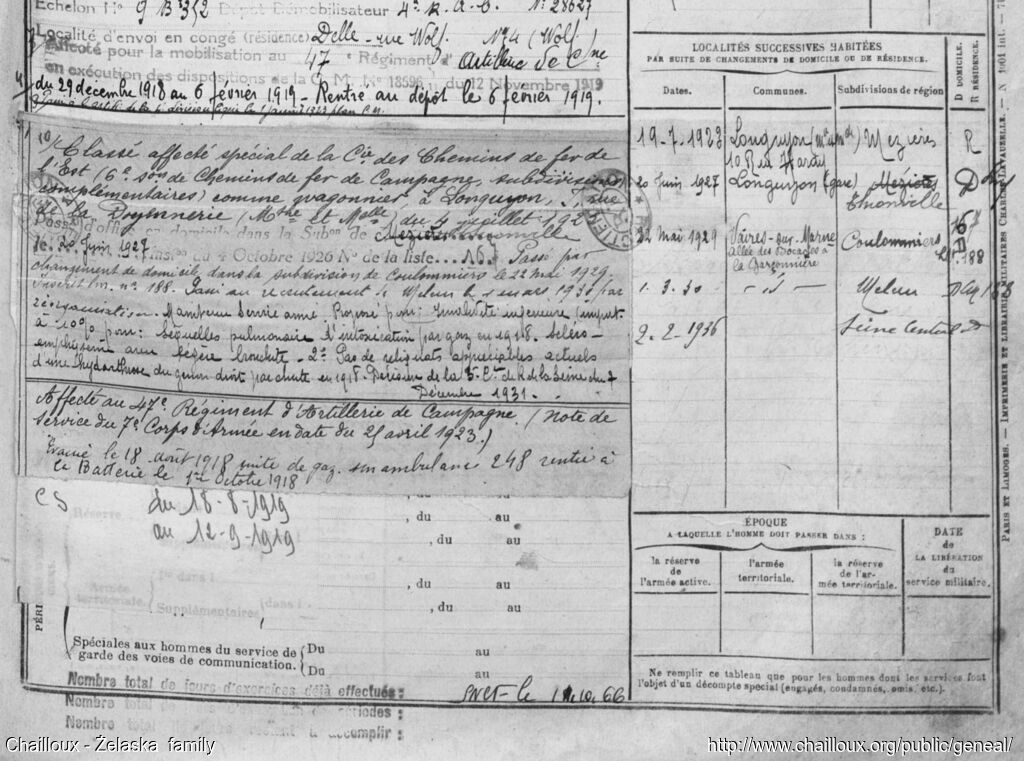 Echelon No 9 B 3/2 Dépôt Démobilisateur 4e R.A.C. No 28627
Localité d'envoi en congé (résidence) Delle - rue Wolf. No 4 (Wolf)
Affecté pour la mobilisation au 47 e Régiment d'artillerie de Cne
en exécution des dispositions de la C. M. No 18596 du 12 Novembre 1919
du 29 décembre 1918 au 6 février 1919 - Rentré au dépôt le 6 février 1919.
Classé affecté spécial de la Cie des Chemins de fer de
l'Est (6e Son de Chemins de fer de Campagne, subdivisions
complémentaires) comme wagonnier, à Longuyon, 7, rue
de la Doyennerie (Mthe et Melle) du 4 juillet 192
Passé d'office en domicile dans la Subon de Mézières Thionville
le 20 juin 1927. Inson du 4 Octobre 1926 No de la liste 167 Passé par
changement de domicile dans la subdivision de Coulommiers le 22 mai 1929.
Inscrit no 188. Passé au recrutement de Melun le 1er mars 1930 par
réorganisation. Maintenu service armé. Proposé pour: invalidité inférieure
à 10% pour: Séquelles pulmonaires d'intoxication par gaz en 1918. Scléro-
emphysème avec légère bronchite - 2o Pas de reliquats appréciables actuels
d'une hydarthrose du genou droit par chute en 1918. Décision de la 3e Con de R de la Seine du 7
Décembre 1931.
Affecté au 47e Régiment d'Artillerie de Campagne (note de
service du 7e Corps d'Armée en date du 25 avril 1923.)
Evacué le 18 août 1918 suite de gaz. sur ambulance 248 rentré à
la Batterie le 1er octobre 1918
CS du 18-8-1919
au 12-9-1919
Réserve
, du au
, du au
Armée territoriale
1re dans l
Supplémentaires dans l
, du au
, du au
PÉRI
Spéciales aux hommes du service de garde des voies de communication.
Du au
Du au
Nombre total de jours d'exercices déjà effectués :
Nombre total de périodes :
Nombre total restant à accomplir :
le 1.10.66
LOCALITÉS SUCCESSIVES HABITÉES
PAR SUITE DE CHANGEMENTS DE DOMICILE OU DE RÉSIDENCE.
Dates. Communes. Subdivisions de région
D DOMICILE. R RÉSIDENCE.
19.7.1923 Longuyon (Mthe et Mlle) Mézières R
10 Rue Hardy
20 Juin 1927 Longuyon (gare) Mézières D
Thionville
167
22 mai 1929 Vaires-sur-Marne Coulommiers D
Allée des Bocages à
la Garçonnière
188
1.3.30 - " - Melun D
2.2.1936 Seine Central
ÉPOQUE
A LAQUELLE L'HOMME DOIT PASSER DANS :
la réserve de l'armée active.
l'armée territoriale.
la réserve de l'armée territoriale.
DATE de LA LIBÉRATION du service militaire.
Ne remplir ce tableau que pour les hommes dont les services font
l'objet d'un décompte spécial (engagés, condamnés, omis, etc.).
PARIS ET LIMOGES. — IMPRIMERIE ET LIBRAIRIE MILITAIRES CHARLES-LAVAUZELLE. — N° 1001 int.
Chailloux - Żelaska family
http://www.chailloux.org/public/geneal/